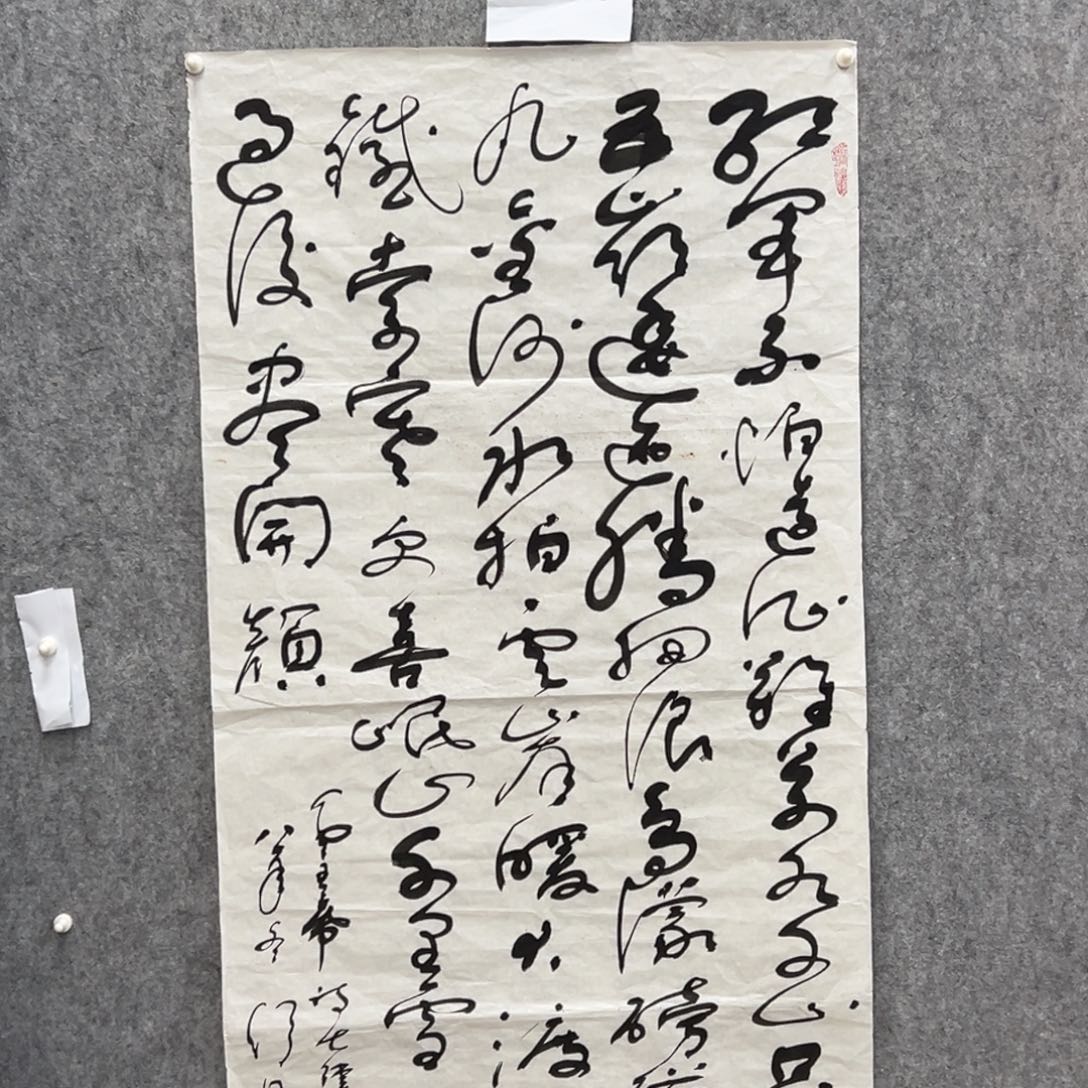 紅軍不怕遠征難萬水千山只
五嶺逶迤騰細浪烏濛磅礴
丸金沙水拍雲崖暖大渡
鐵索寒更喜岷山千里雪
過後盡開顏
毛主席詩七律
八年冬